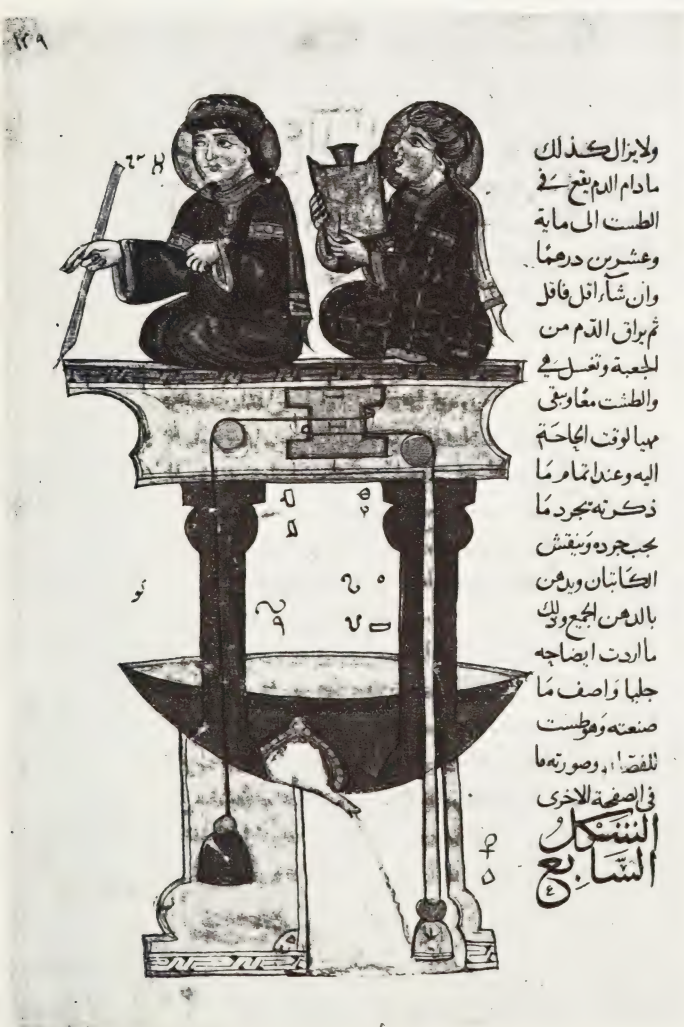 ١٣٩
ولا يزال كذلك
مادام الدم يقع في
الطست الى ماية
وعشرين درهما
وان شاء اقل فاقل
ثم يراق الدم من
الجعبة وتغسل هي
والطشت معا وتبقى
مهيا لوقت الحاجة
اليه وعند اتمام ما
ذكرته تجرد ما
يجب جرده وينقش
الكاتبان ويدهن
بالدهن الجميع وذلك
ما اردت ايضاحه
جليا واصف ما
صنعته وهو طست
للفصاد وصورته ما
في الصفحة الاخرى
الشكل
السابع